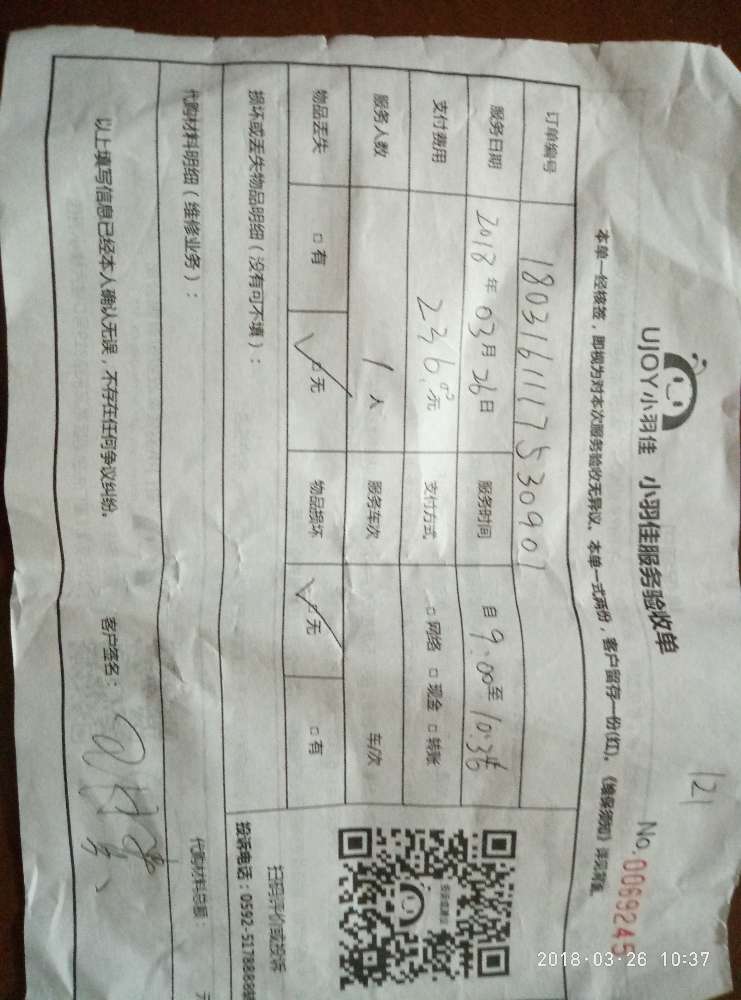 121
UJOY小羽佳 小羽佳服务验收单 No.0069245
本单一经核签，即视为对本次服务验收无异议、本单一式两份，客户留存一份(红)。
订单编号 180316111753090 1
服务日期 2018年03月26日 服务时间 自9:00至10:36
支付费用 236.00元 支付方式 □网络 □现金 □转账
服务人数 1人 服务车次 车/次
物品丢失 □有 □无 物品损坏 □无 □有
损坏或丢失物品明细（没有可不填）：
扫码评价或投诉
投诉电话：0592-5178888
代购材料明细（维修业务）：
代购材料总额： 元
以上填写信息已经本人确认无误，不存在任何争议纠纷。 客户签名：
2018-03-26 10:37